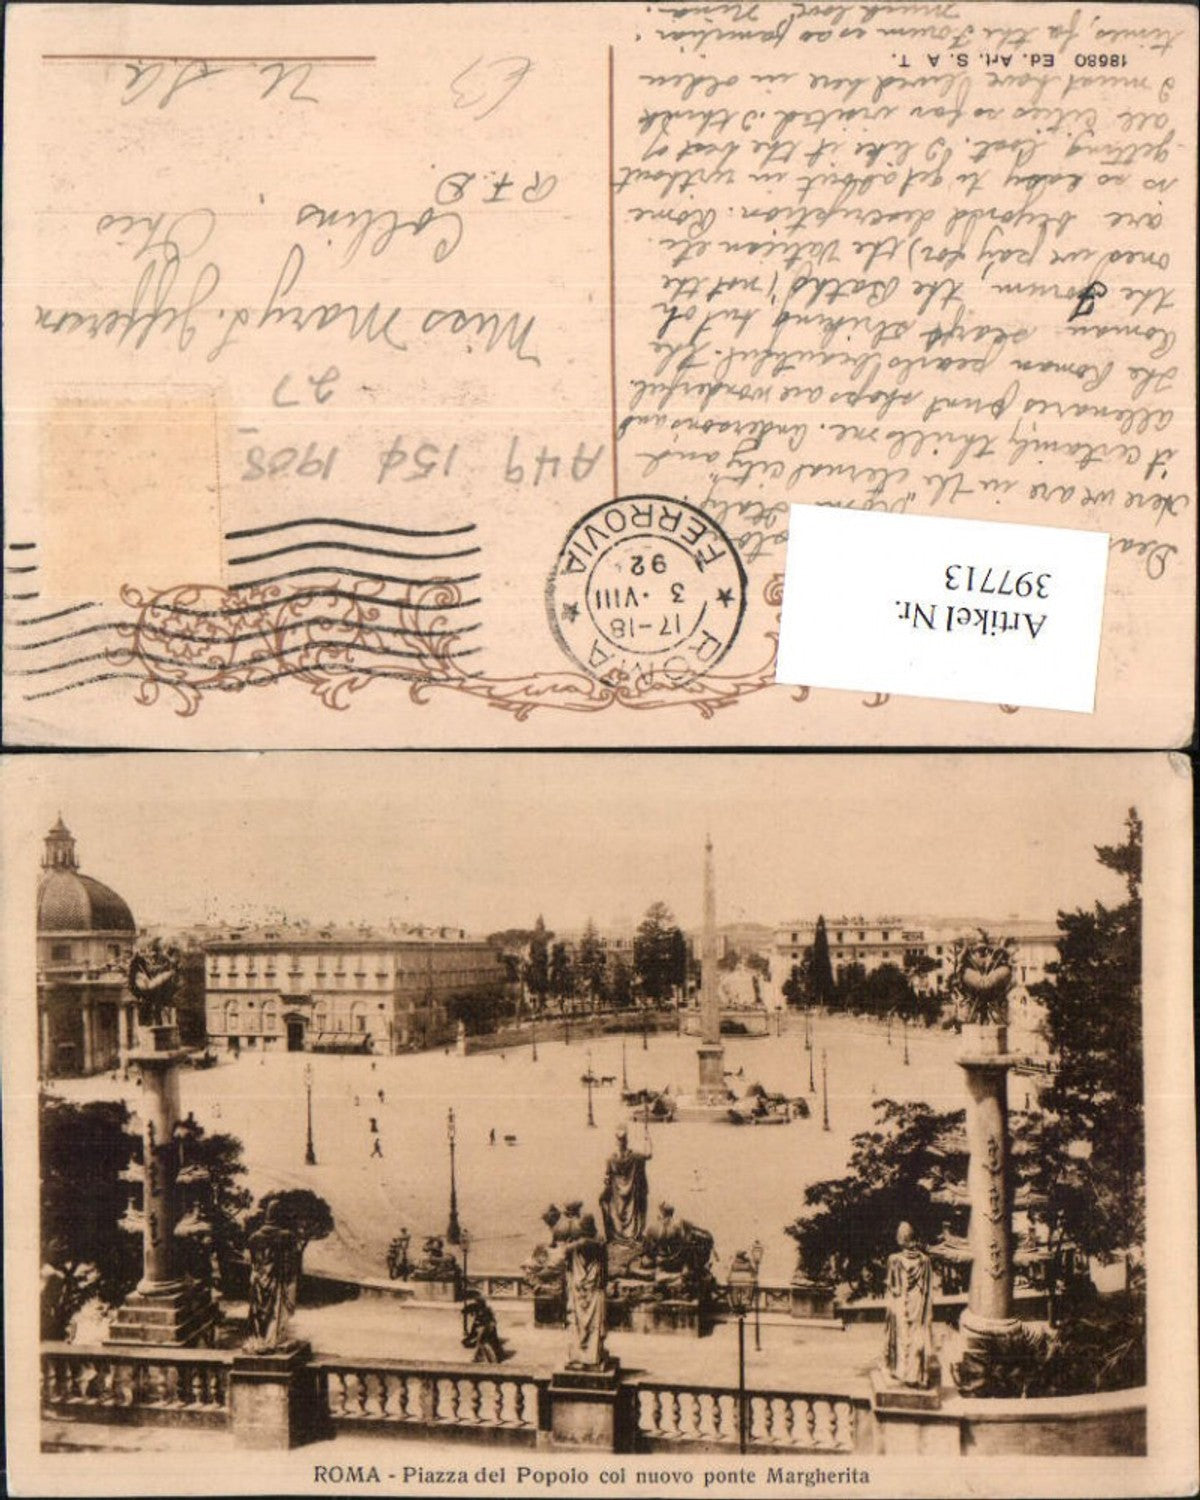 Here we are in the eternal city and
it certainly thrills me. Andersons and
allenares print shops are wonderful.
The Roman pearls beautiful. The
Roman scarfs striking but oh
the Forum, the Baths (not the
ones we pay for) the Vatican etc.
are beyond description. Rome
is so easy to get about in without
getting lost. I like it the best of
all cities so far visited. I think
I must have lived here in olden
times, for the Forum is so familiar.
Much love Nina.
18680 Ed. Art. S. A. T.
ROMA
17-18
3 · VIII
92
FERROVIA
A49 15¢ 1908
27
Miss Mary L. Jefferson
Collins, Ohio
R.F.D.
63
U. S. A
Artikel Nr.
397713
ROMA - Piazza del Popolo col nuovo ponte Margherita